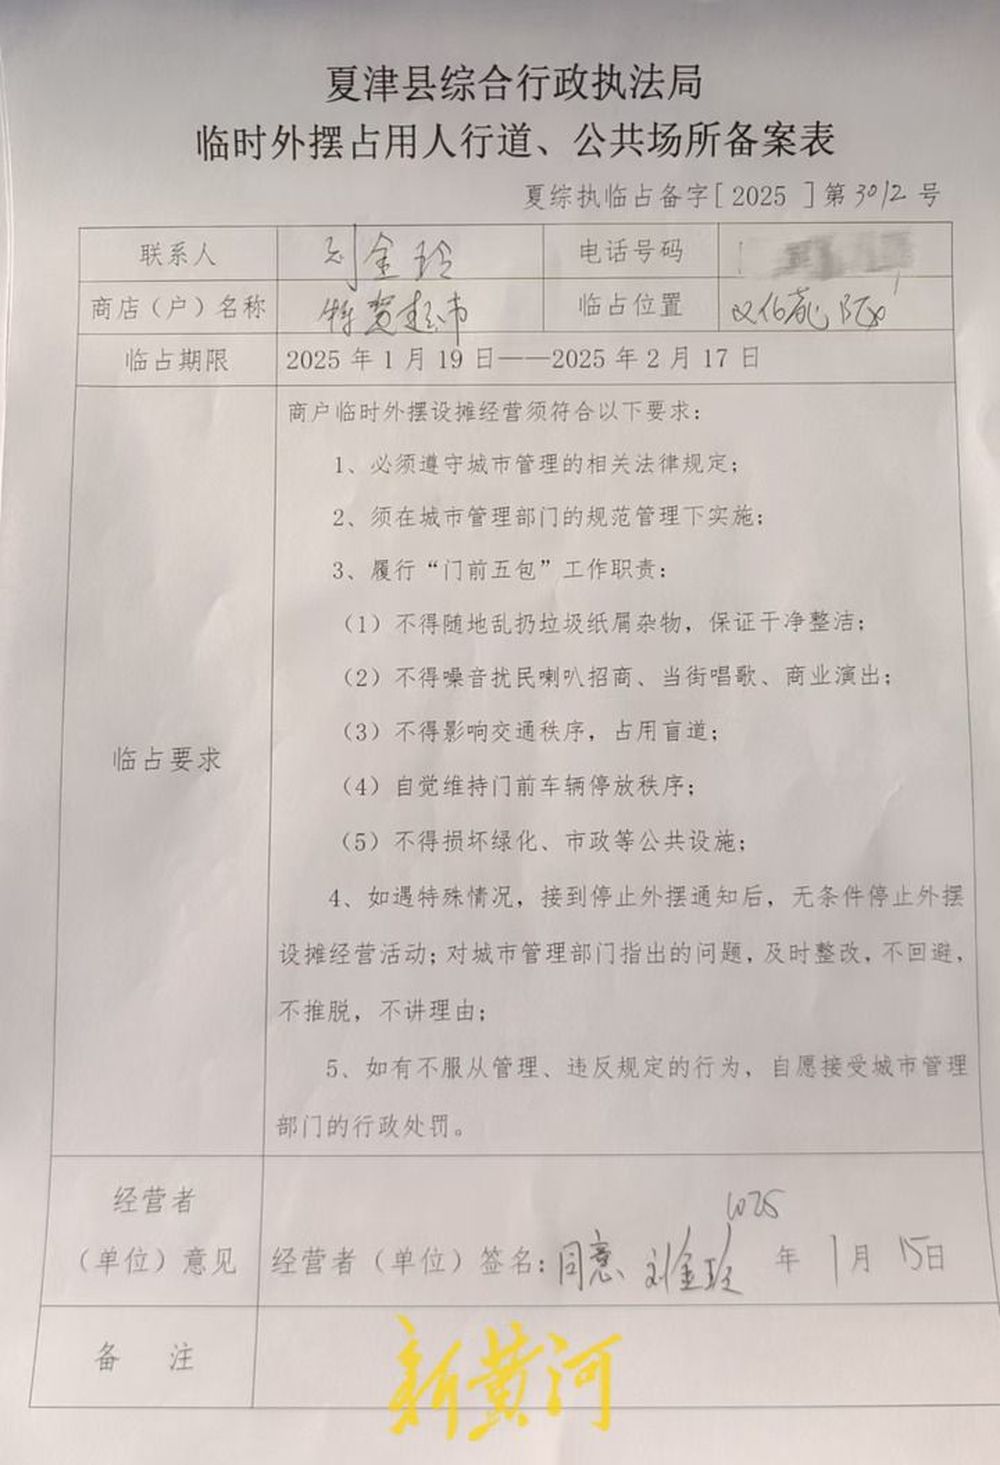 夏津县综合行政执法局
临时外摆占用人行道、公共场所备案表
夏综执临占备字[ 2025 ]第3012号
联系人 刘金玲 电话号码
商店（户）名称 超市 临占位置
临占期限 2025 年 1 月 19 日——2025 年 2 月 17 日
商户临时外摆设摊经营须符合以下要求：
1、必须遵守城市管理的相关法律规定；
2、须在城市管理部门的规范管理下实施；
3、履行“门前五包”工作职责：
（1）不得随地乱扔垃圾纸屑杂物，保证干净整洁；
（2）不得噪音扰民喇叭招商、当街唱歌、商业演出；
（3）不得影响交通秩序，占用盲道；
临占要求
（4）自觉维持门前车辆停放秩序；
（5）不得损坏绿化、市政等公共设施；
4、如遇特殊情况，接到停止外摆通知后，无条件停止外摆
设摊经营活动；对城市管理部门指出的问题，及时整改，不回避，
不推脱，不讲理由；
5、如有不服从管理、违反规定的行为，自愿接受城市管理
部门的行政处罚。
经营者
（单位）意见
2025
经营者（单位）签名：同意 刘金玲 年 1月 15日
备 注
新黄河